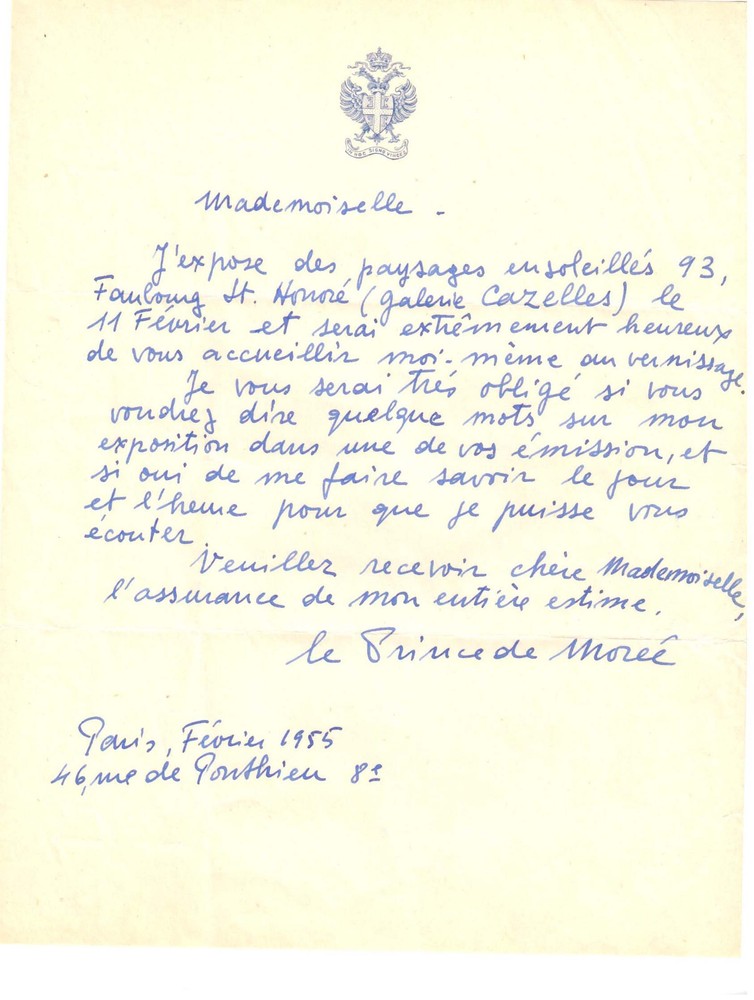 IN HOC SIGNO VINCES
Mademoiselle -
J'expose des paysages ensoleillés 93,
Faubourg St. Honoré (galerie Cazelles) le
11 Février et serai extrêmement heureux
de vous accueillir moi-même au vernissage.
Je vous serai trés obligé si vous
voudrez dire quelque mots sur mon
exposition dans une de vos émission, et
si oui de me faire savoir le jour
et l'heure pour que je puisse vous
écouter.
Veuillez recevoir chère Mademoiselle,
l'assurance de mon entière estime.
le Prince de Moreé
Paris, Février 1955
46, rue de Ponthieu 8e